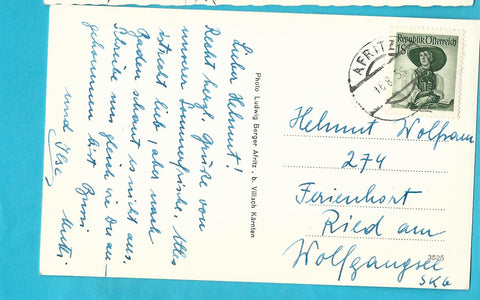 Lieber Helmut!
Recht herzl. Grüße von
unserer Sommerfrische. Alles
ist recht lieb, aber nach
Baden schaut es nicht aus.
Schreibe uns gleich wie Du an-
gekommen bist. Bussi
Mutti
und Ilse
Photo Ludwig Berger Afritz, b. Villach Kärnten
AFRITZ
Republik Österreich
1S
Helmut Wolfram
274
Ferienhort
Ried am
Wolfgangsee
SKG
3525